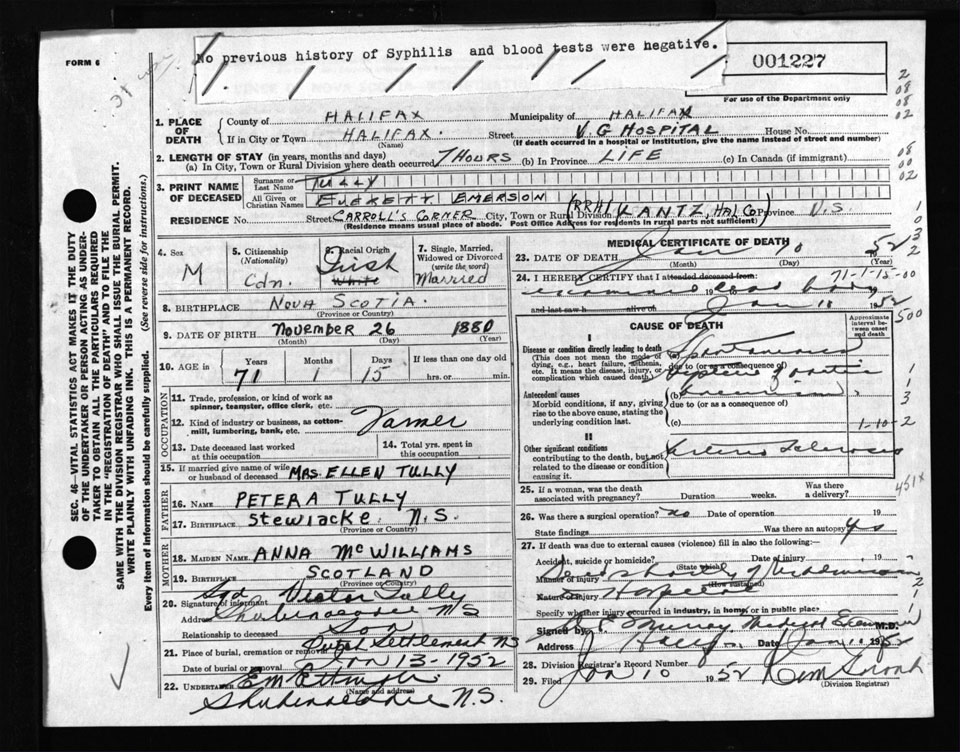 FORM 6
No previous history of Syphilis and blood tests were negative.
001227
For use of the Department only
1. PLACE OF DEATH
County of HALIFAX Municipality of HALIFAX
If in City or Town HALIFAX. Street V.G HOSPITAL House No.
(Name) (If death occurred in a hospital or Institution, give the name instead of street and number)
2. LENGTH OF STAY (in years, months and days)
(a) In City, Town or Rural Division where death occurred 7 HOURS (b) In Province LIFE (c) In Canada (if immigrant)
3. PRINT NAME OF DECEASED
Surname or Last Name TULLY
All Given or Christian Names EVERETT EMERSON
RESIDENCE No. Street CARROLL'S CORNER City, Town or Rural Division (RRH1) LANTZ, HAL CO Province N.S.
(Residence means usual place of abode. Post Office Address for residents in rural parts not sufficient)
4. Sex M
5. Citizenship (Nationality) Cdn.
6. Racial Origin Irish White
7. Single, Married, Widowed or Divorced (write the word) Married
8. BIRTHPLACE NOVA SCOTIA.
(Province or Country)
9. DATE OF BIRTH November 26 1880
(Month) (Day) (Year)
10. AGE in Years Months Days If less than one day old
71 1 15 hrs. or min.
OCCUPATION
11. Trade, profession, or kind of work as spinner, teamster, office clerk, etc.
12. Kind of industry or business, as cotton-mill, lumbering, bank, etc. Farmer
13. Date deceased last worked at this occupation
14. Total yrs. spent in this occupation
15. If married give name of wife or husband of deceased MRS. ELLEN TULLY
FATHER
16. Name PETER A TULLY
17. Birthplace Stewiacke N.S.
(Province or Country)
MOTHER
18. MAIDEN NAME. ANNA McWILLIAMS
19. BIRTHPLACE SCOTLAND
(Province or Country)
20. Signature of informant Sgd Victor Tully
Address Shubenacadie NS
Relationship to deceased Son
21. Place of burial, cremation or removal Dutch Settlement NS
Date of burial or removal Jan 13-1952
22. UNDERTAKER E M Ettinger
(Name and address)
Shubenacadie N.S.
MEDICAL CERTIFICATE OF DEATH
23. DATE OF DEATH Jan 10 52
(Month) (Day) (Year)
71-1-15-00
24. I HEREBY CERTIFY that I attended deceased from:
examined dead body
19
and last saw h alive on Jan 10 1952
CAUSE OF DEATH
Approximate interval between onset and death
I
Disease or condition directly leading to death
(This does not mean the mode of dying, e.g., heart failure, asthenia, etc. It means the disease, injury, or complication which caused death)
(a) Spontaneous
due to (or as a consequence of)
(b)
Antecedent causes
Morbid conditions, if any, giving rise to the above cause, stating the underlying condition last.
due to (or as a consequence of)
(c) 1-10-2
II
Other significant conditions
contributing to the death, but not related to the disease or condition causing it.
Arterio Sclerosis
451X
25. If a woman, was the death associated with pregnancy? Duration weeks. Was there a delivery?
26. Was there a surgical operation? no Date of operation 19
State findings Was there an autopsy? yes
27. If death was due to external causes (violence) fill in also the following:
Accident, suicide or homicide? Date of injury 19
(State which)
Manner of injury
(How sustained)
Nature of injury
Specify whether injury occurred in industry, in home, or in public place?
Signed by Murray, Medical Examiner M.D.
Address Hfx. Date Jan 10 1952
28. Division Registrar's Record Number
29. Filed Jan 10 1952
(Division Registrar)
SEC. 46 - VITAL STATISTICS ACT MAKES IT THE DUTY OF THE UNDERTAKER OR PERSON ACTING AS UNDERTAKER TO OBTAIN ALL THE PARTICULARS REQUIRED IN THE "REGISTRATION OF DEATH" AND TO FILE THE SAME WITH THE DIVISION REGISTRAR WHO SHALL ISSUE THE BURIAL PERMIT.
WRITE PLAINLY WITH UNFADING INK. THIS IS A PERMANENT RECORD.
Every item of information should be carefully supplied. (See reverse side for instructions.)